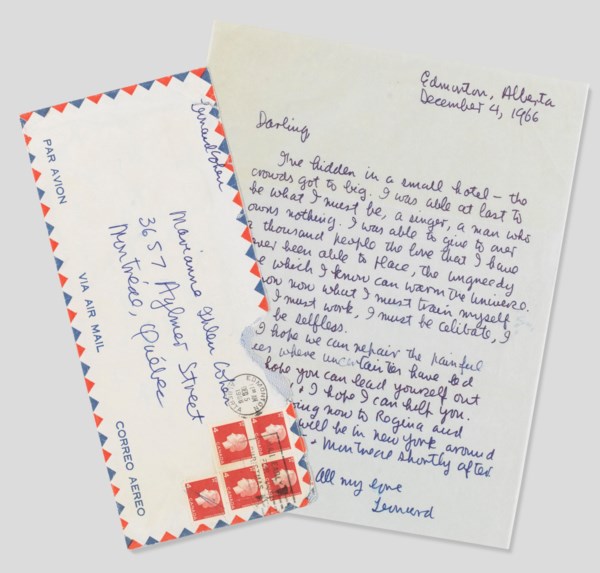 PAR AVION
VIA AIR MAIL
CORREO AEREO
Leonard Cohen
Marianne Ihlen Cohen
3657 Aylmer Street
Montréal, Québec
EDMONTON
Edmonton, Alberta
December 4, 1966
Darling,
I've hidden in a small hotel – the
crowds got to big. I was able at last to
be what I must be, a singer, a man who
owns nothing. I was able to give to over
thousand people the love that I have
ver been able to place, the ungreedy
e which I know can warm the universe.
now now what I must train myself
I must work, I must be celibate, I
be selfless.
I hope we can repair the painful
ces where uncertainties have led
hope you can lead yourself out
I hope I can help you.
ing now to Regina and
will be in new york around
+ Montreal shortly after
All my love
Leonard